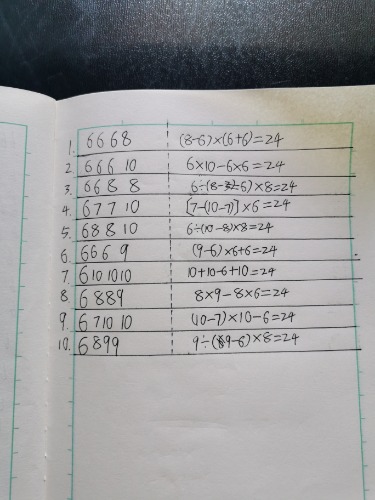 1. 6 6 6 8 (8-6)×(6+6)=24
2 6 6 6 10 6×10-6×6=24
3. 6 6 8 8 6÷(8-6)×8=24
4. 6 7 7 10 [7-(10-7)]×6=24
5. 6 8 8 10 6÷(10-8)×8=24
6. 6 6 6 9 (9-6)×6+6=24
7 6 10 10 10 10+10-6+10=24
8 6 8 8 9 8×9-8×6=24
9. 6 7 10 10 (10-7)×10-6=24
10. 6 8 9 9 9÷(9-6)×8=24